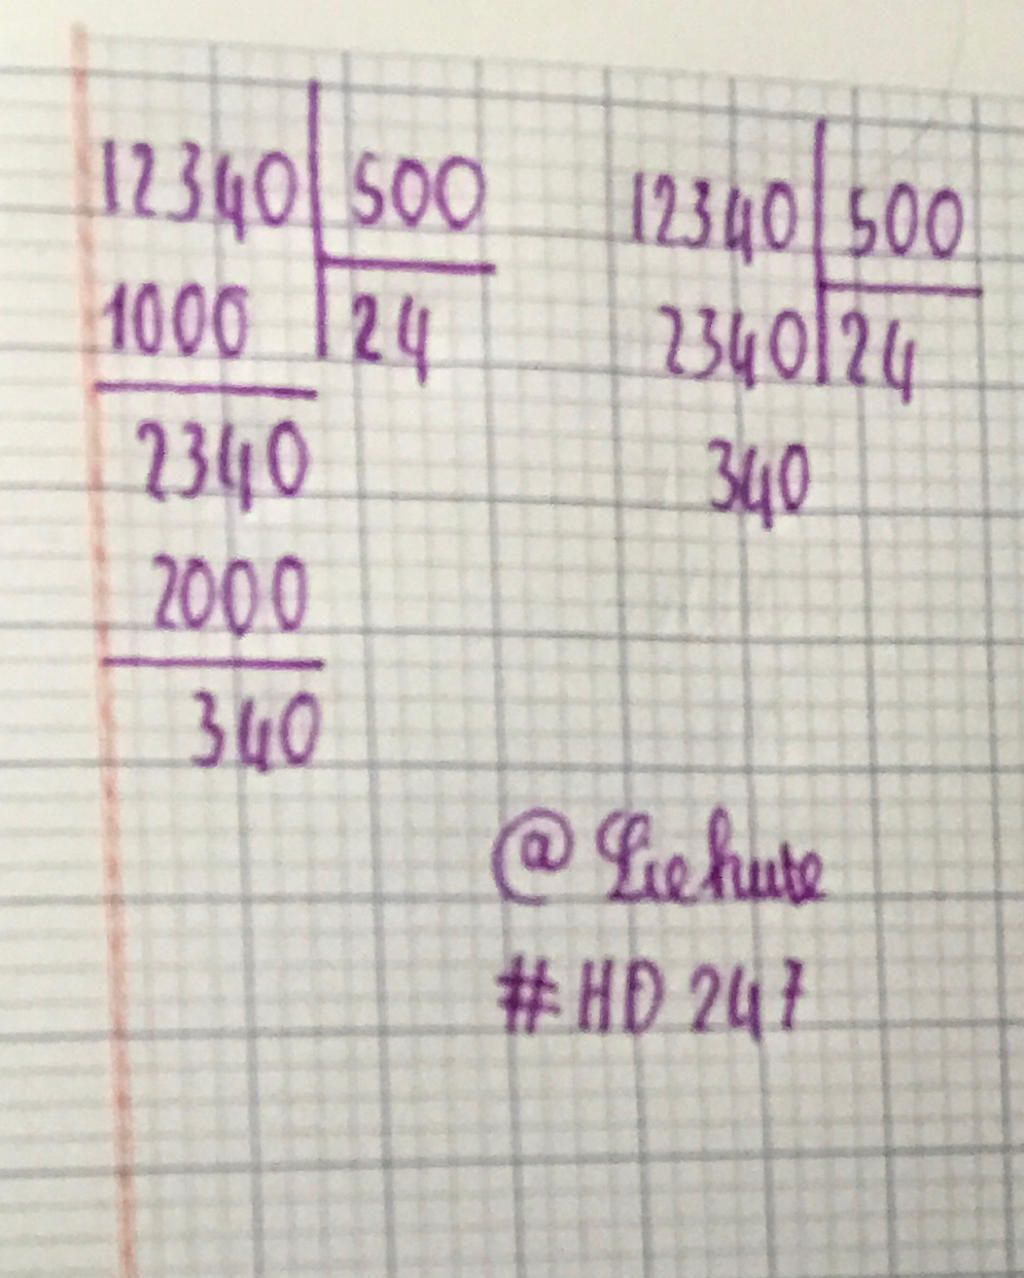 12340 500
1000 24
2340
2000
340
12340 500
2340 24
340
@
#HD 247